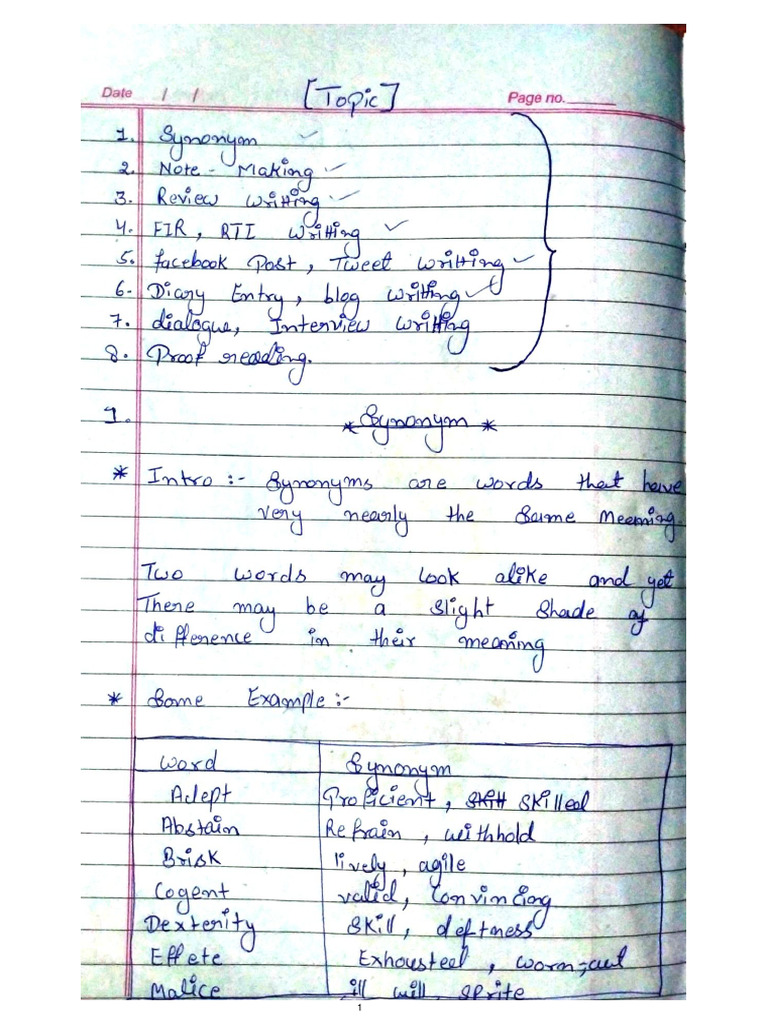 Date / / [Topic] Page no.
1. Synonym
2. Note - Making
3. Review writting
4. FIR, RTI writting
5. facebook Post, Tweet writting
6. Diary Entry, blog writting
7. dialogue, Interview writting
8. Proof reading.
1. * Synonym *
* Intro :- Synonyms are words that have
very nearly the Same Meeming.
Two words may look alike and yet
There may be a slight Shade of
difference in their meaning
* Some Example :-
Word Synonym
Adept Proficient, Skill Skilled
Abstain Refrain, withhold
Brisk lively, agile
Cogent valid, Convincing
Dexterity Skill, deftness
Effete Exhousteel, worm-out
Malice ill will, sprite
1